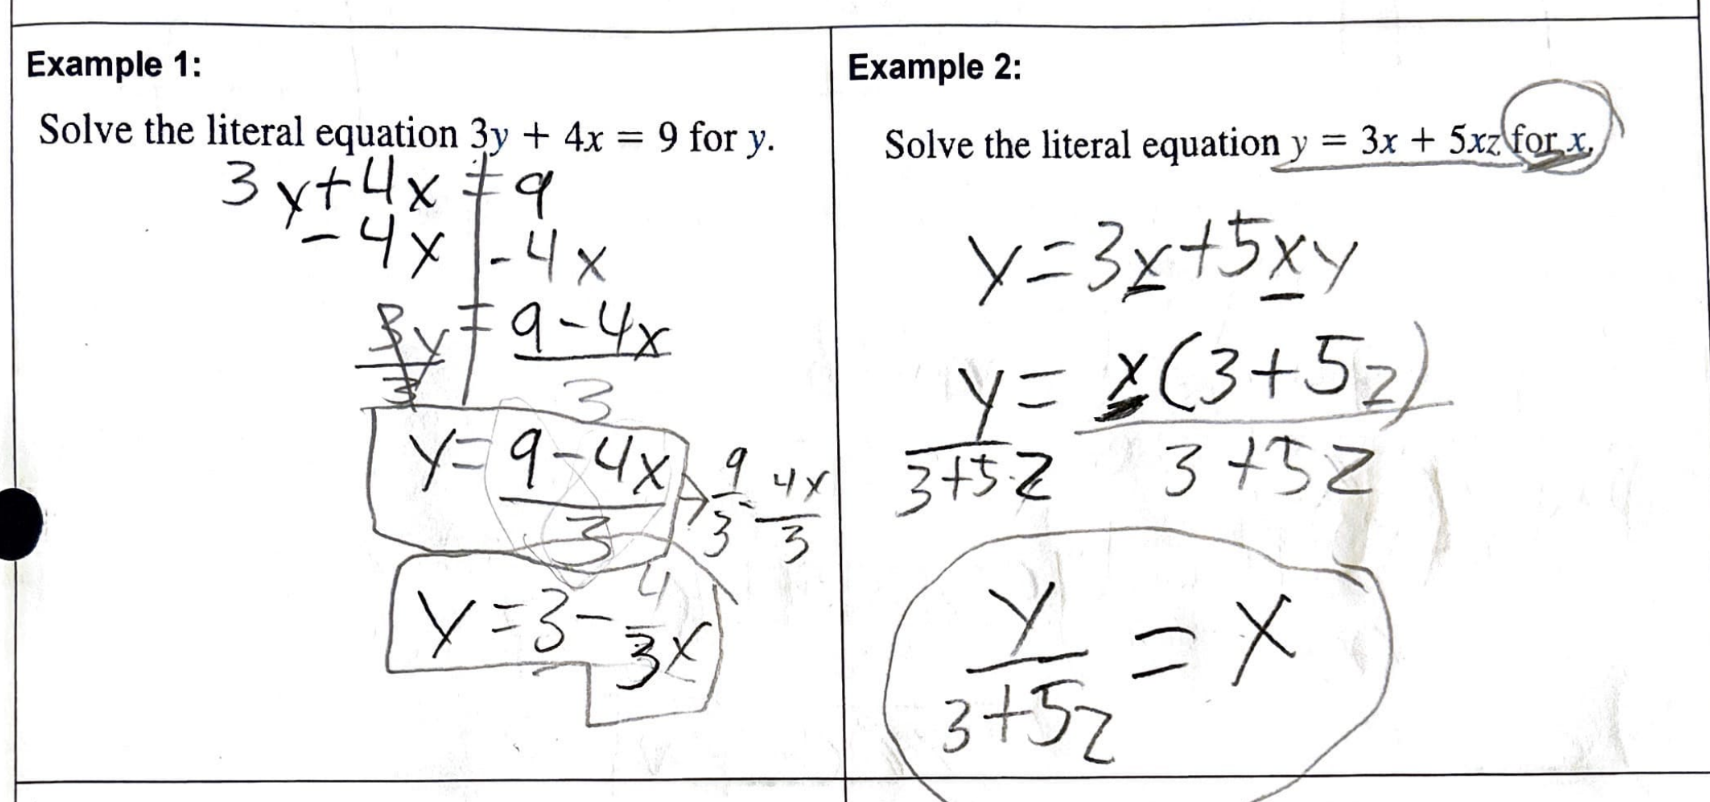 Example 1:
Solve the literal equation 3y + 4x = 9 for y.
3y+4x=9
-4x -4x
3y = 9-4x
3 3
y=9-4x
3
9 4x
3 - 3
y=3-4
3x
Example 2:
Solve the literal equation y = 3x + 5xz for x.
y=3x+5xy
y= x(3+5z)
3+5z 3+5z
y = x
3+5z